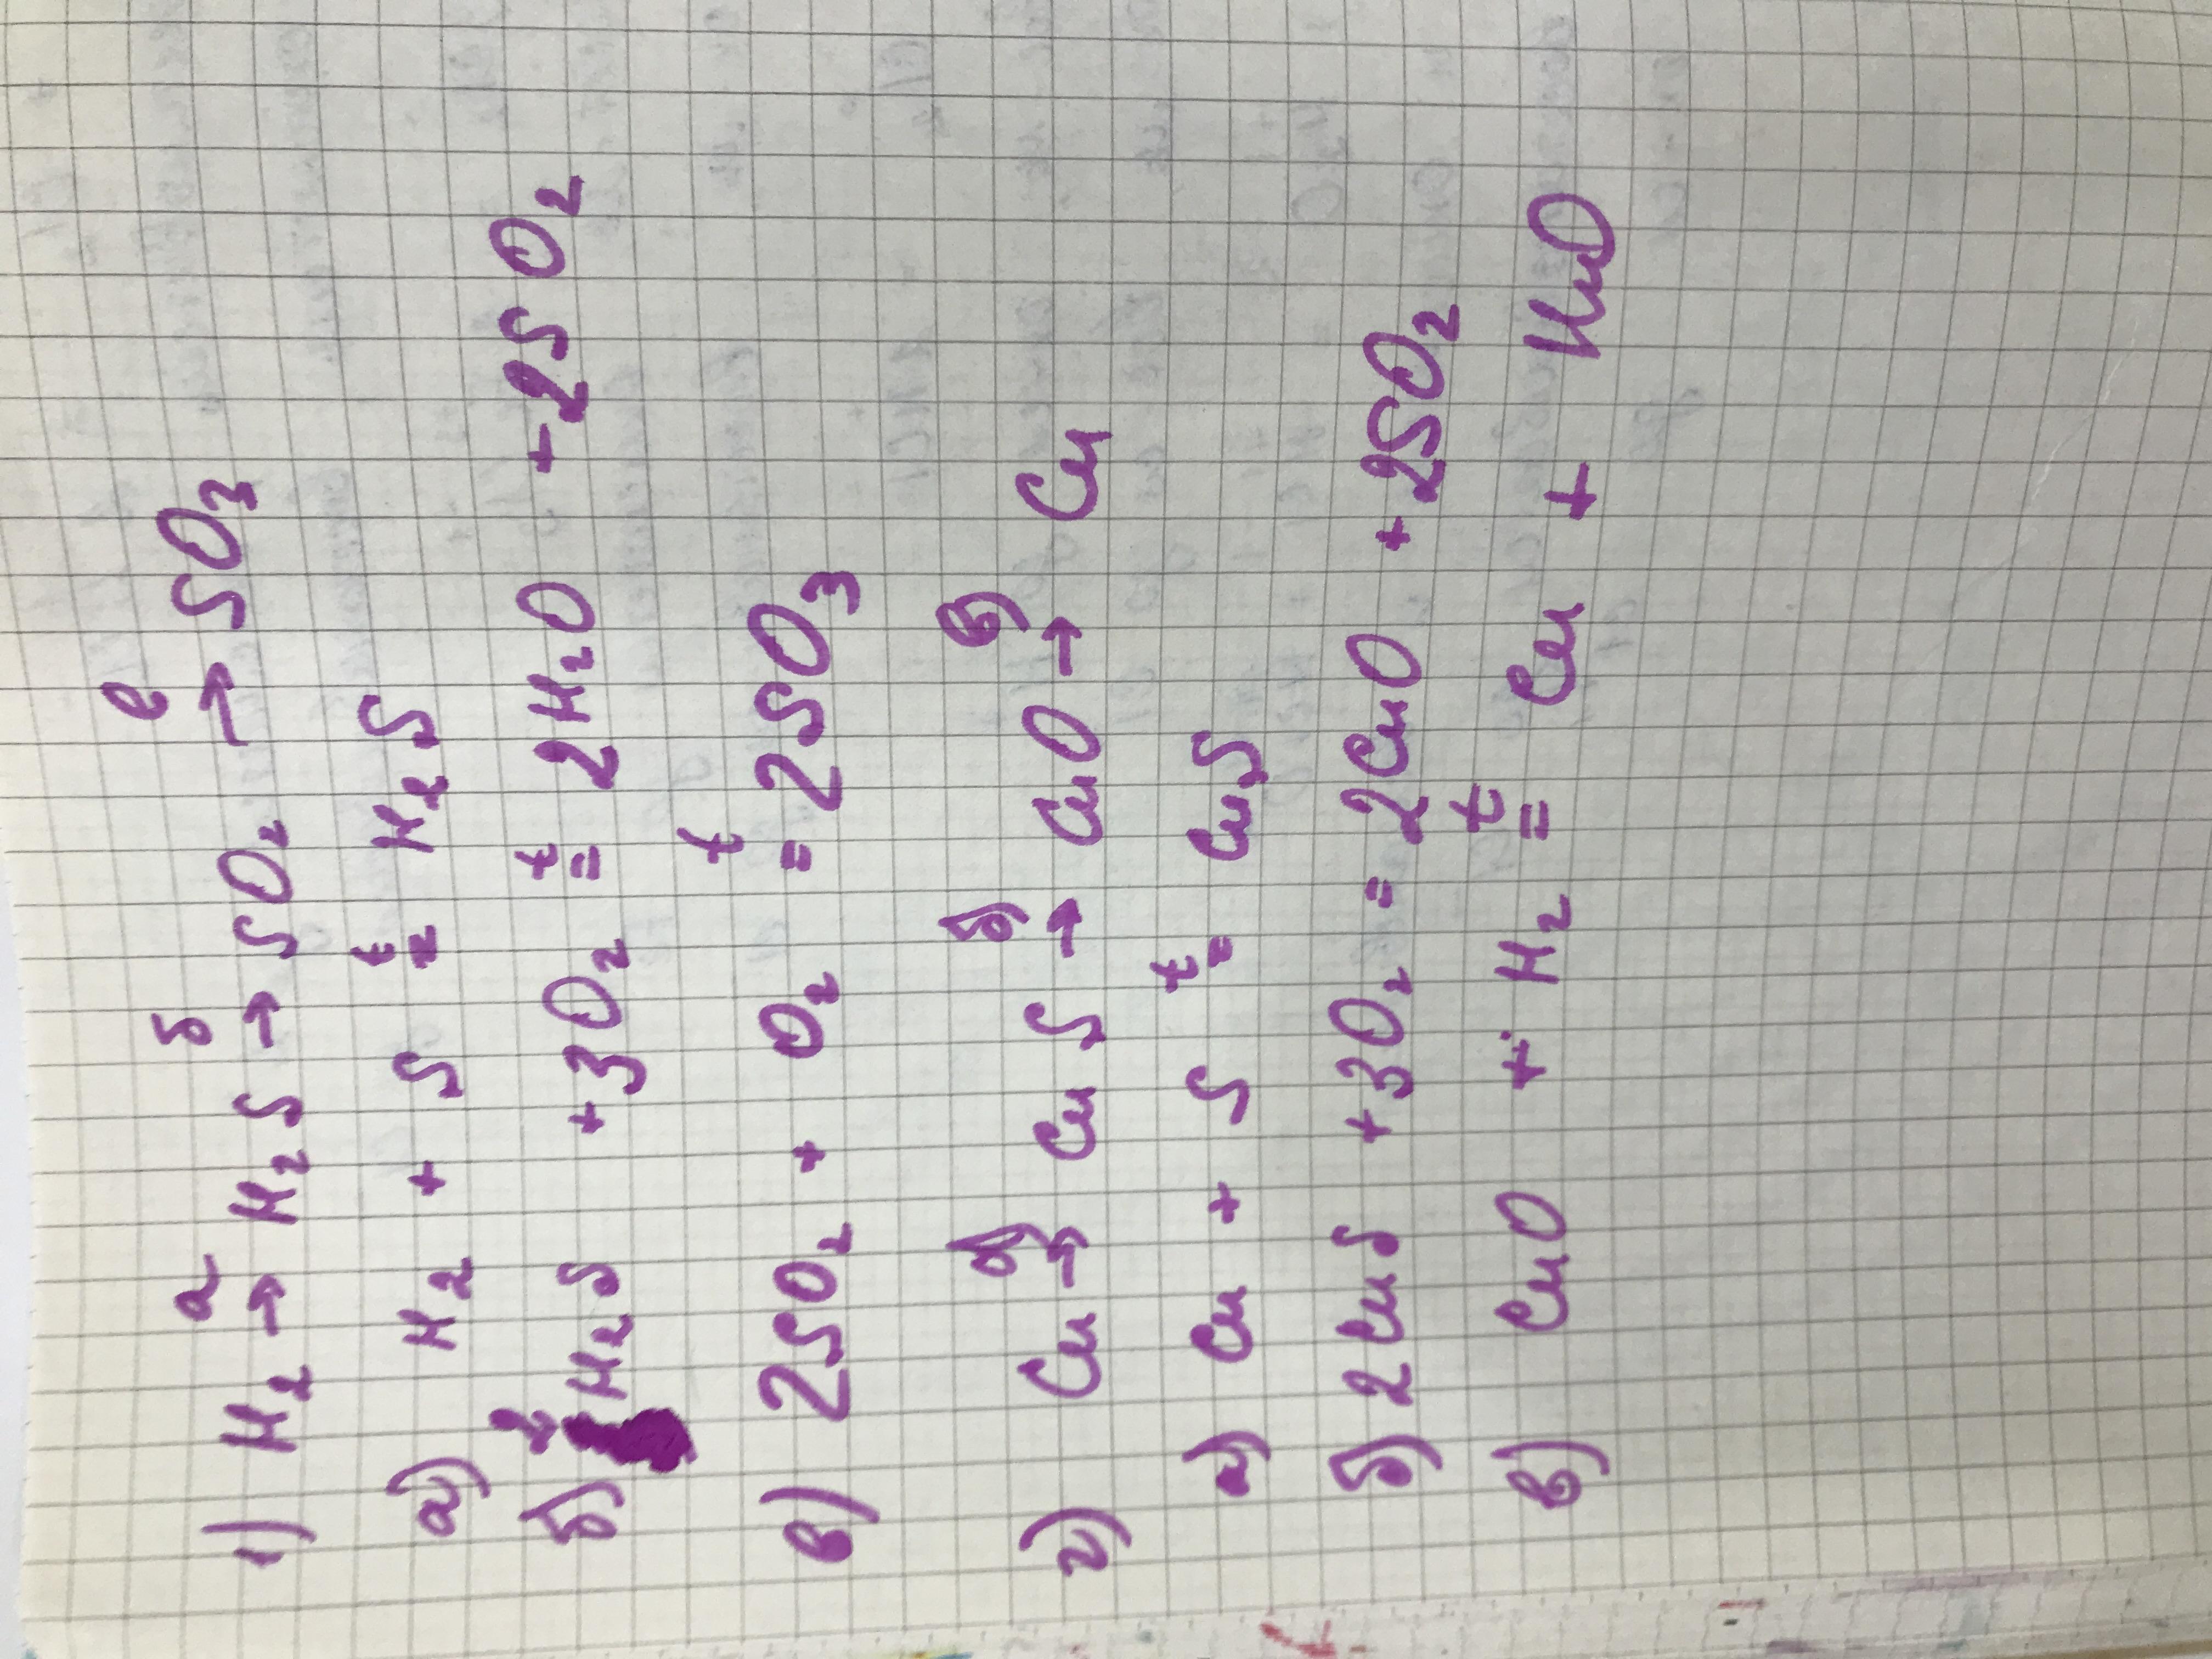 1) H₂ →ᵃ H₂S →ᵟ SO₂ →ᵉ SO₃
а) H₂ + S =ᵗ H₂S
б) 2H₂S + 3O₂ =ᵗ 2H₂O + 2SO₂
в) 2SO₂ + O₂ =ᵗ 2SO₃
2) Cu →ᵃ⁾ CuS →ᵟ⁾ CuO →ᵇ⁾ Cu
а) Cu + S =ᵗ CuS
б) 2CuS + 3O₂ = 2CuO + 2SO₂
в) CuO + H₂ =ᵗ Cu +